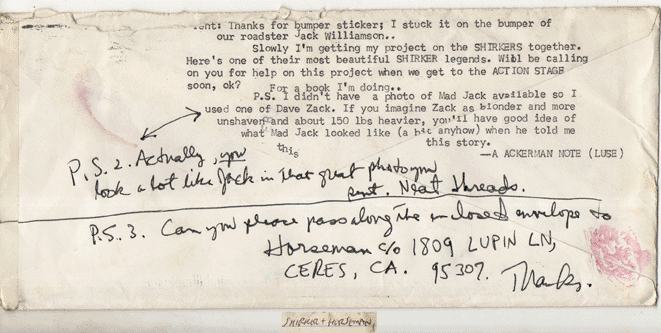 ent: Thanks for bumper sticker; I stuck it on the bumper of
our roadster Jack Williamson..
Slowly I'm getting my project on the SHIRKERS together.
Here's one of their most beautiful SHIRKER legends. Will be calling
on you for help on this project when we get to the ACTION STAGE
soon, ok? For a book I'm doing..
P.S. I didn't have a photo of Mad Jack available so I
used one of Dave Zack. If you imagine Zack as blonder and more
unshaven and about 150 lbs heavier, you'll have good idea of
what Mad Jack looked like (a bit anyhow) when he told me
this this story.
—A ACKERMAN NOTE (LUSE)
P.S. 2. Actually, you
look a lot like Jack in that great photo you
sent. Neat threads.
P.S. 3. Can you please pass along the enclosed envelope to
Horseman c/o 1809 LUPIN LN,
CERES, CA. 95307. Thanks.
SHIRKER + HORSEMAN,